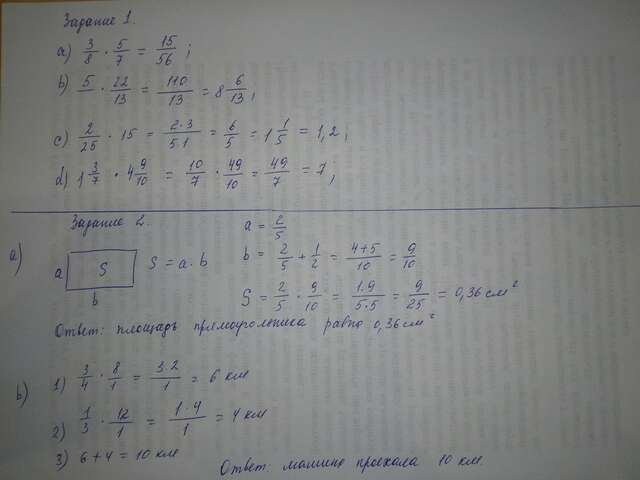 Задание 1.
a) 3/8 · 5/7 = 15/56 ;
b) 5 · 22/13 = 110/13 = 8 6/13 ;
c) 2/25 · 15 = 2·3/5·1 = 6/5 = 1 1/5 = 1,2 ;
d) 1 3/7 · 4 9/10 = 10/7 · 49/10 = 49/7 = 7 ;
Задание 2.
a = 2/5
a) a S b S = a · b b = 2/5 + 1/2 = 4+5/10 = 9/10
S = 2/5 · 9/10 = 1·9/5·5 = 9/25 = 0,36 см²
Ответ: площадь прямоугольника равна 0,36 см²
b) 1) 3/4 · 8/1 = 3·2/1 = 6 км
2) 1/3 · 12/1 = 1·4/1 = 4 км
3) 6 + 4 = 10 км
Ответ: машина проехала 10 км.